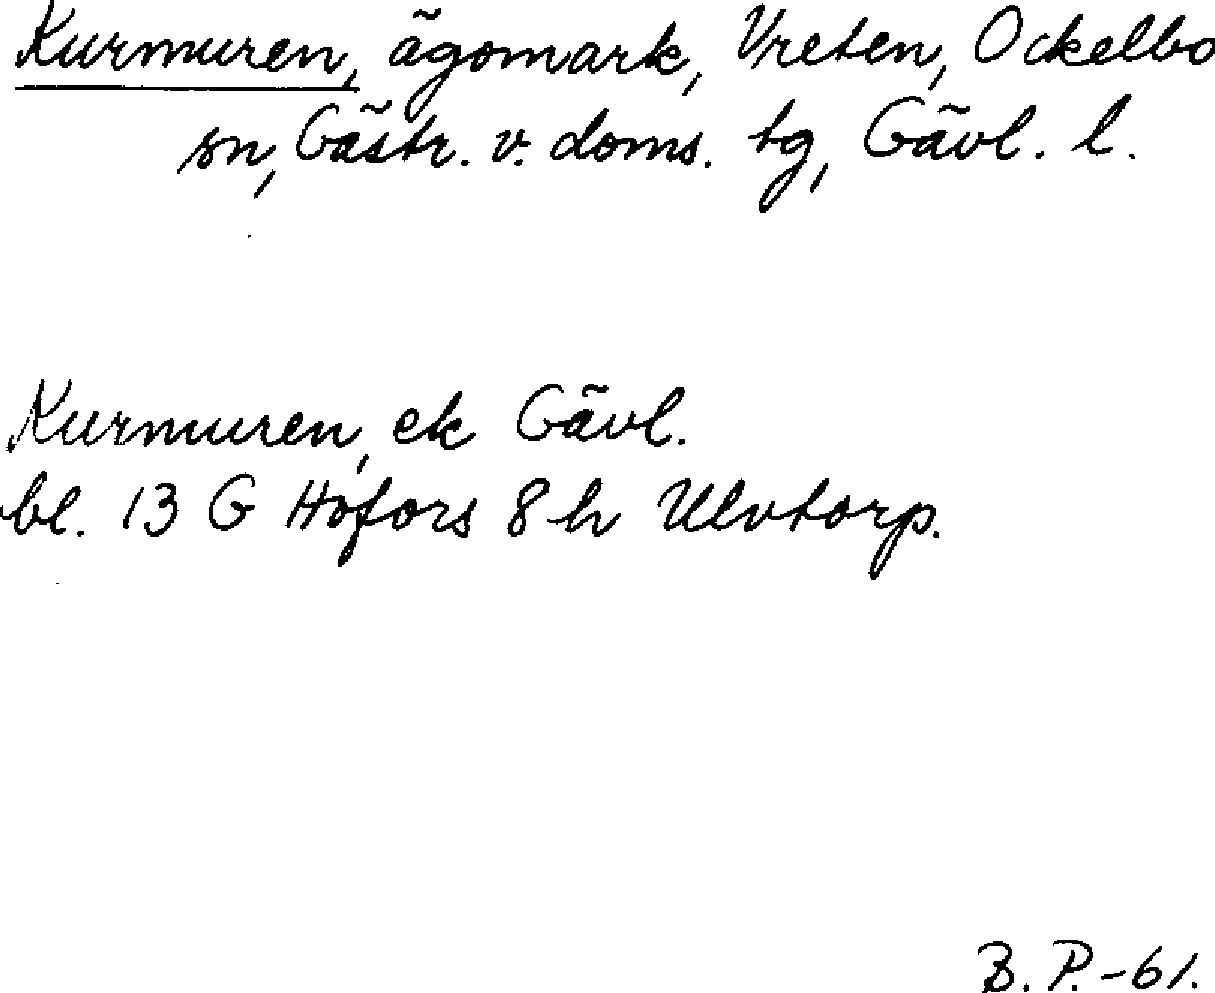 Kurmuren, ägomark, Vreten, Ockelbo
sn, Gästr. v. doms. tg, Gävl. l.
Kurmuren, ek Gävl.
bl. 13 G Hofors 8 h Ulvtorp.
B. P. -61.